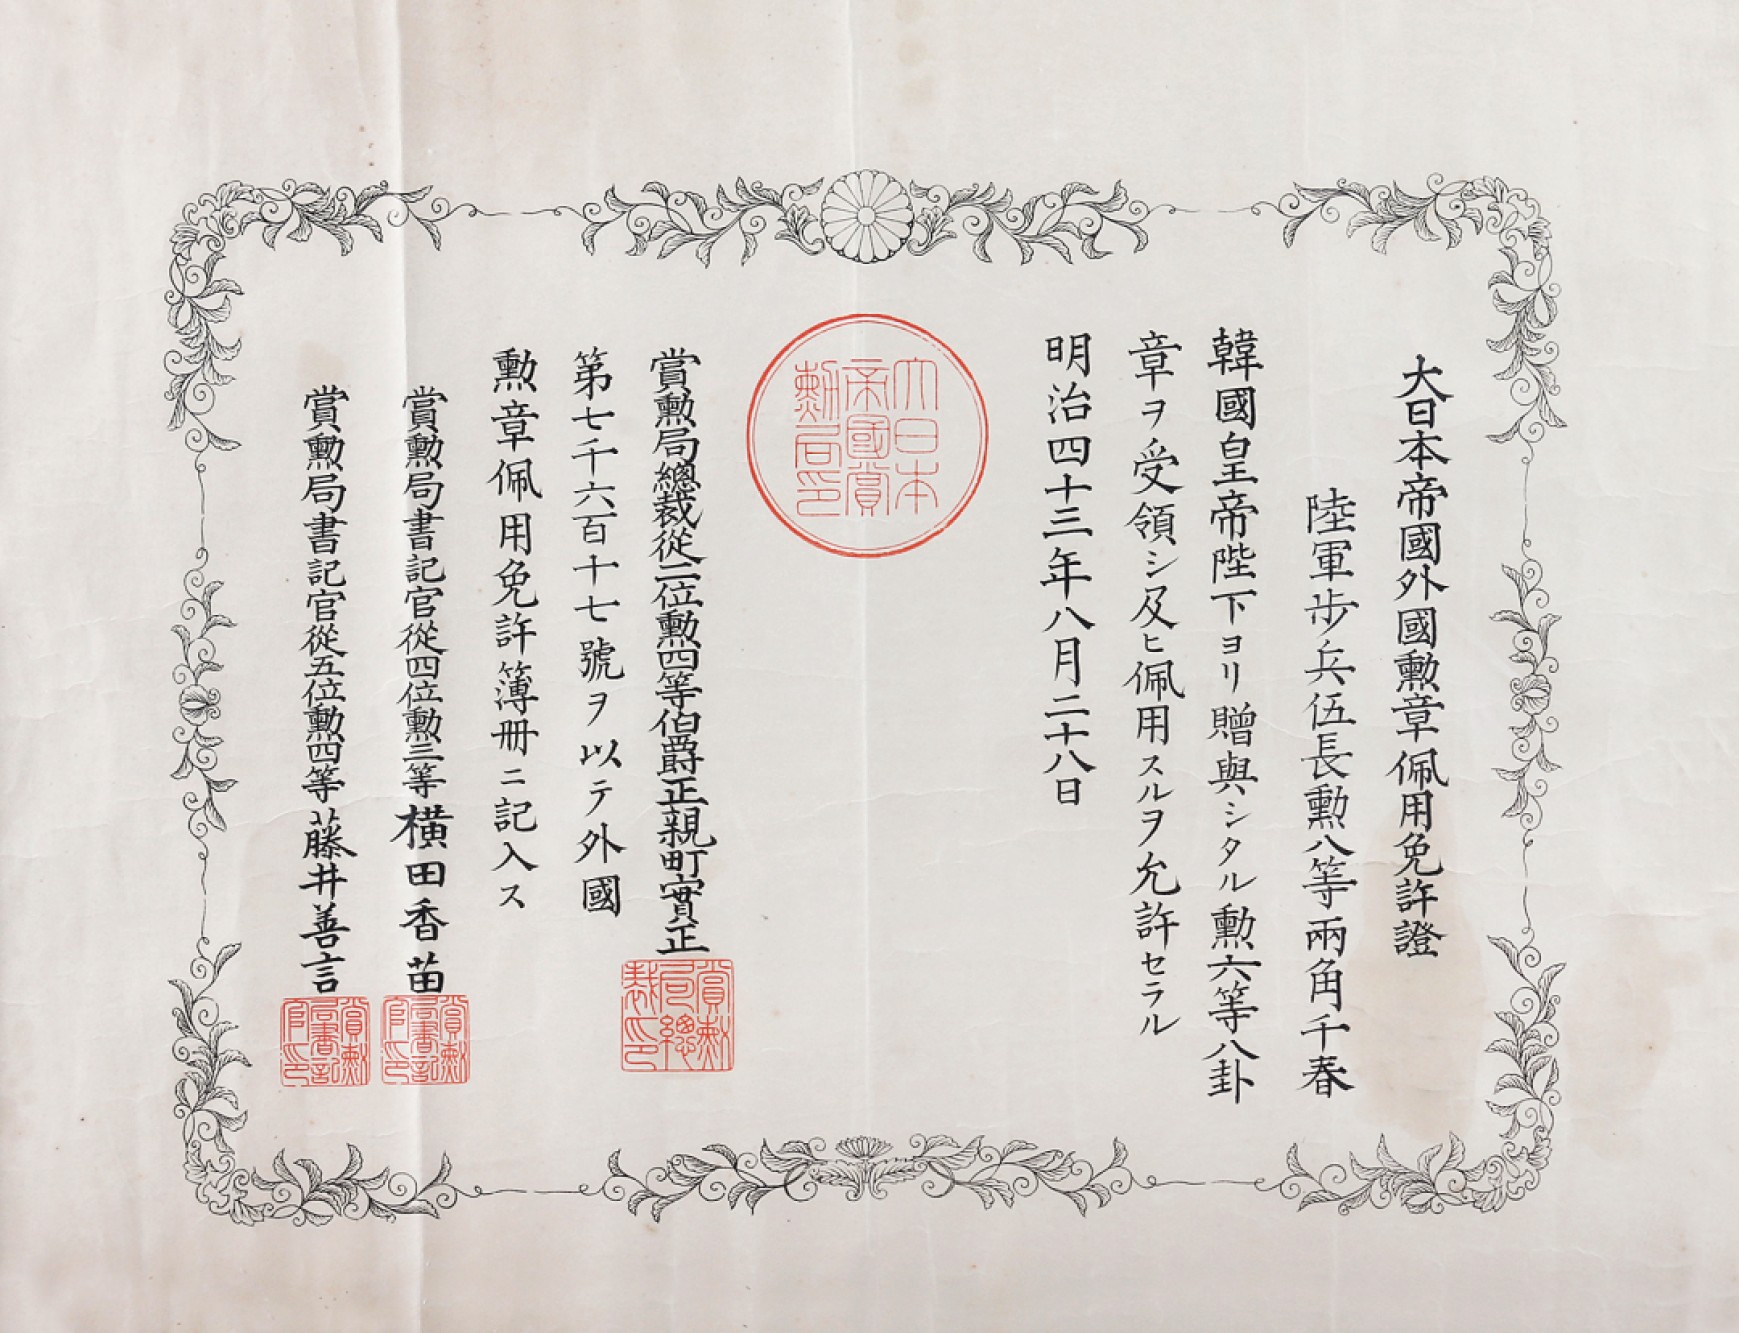 大日本帝國外國勳章佩用免許證
陸軍歩兵伍長勳八等兩角千春
韓國皇帝陛下ヨリ贈與シタル勳六等八卦
章ヲ受領シ及ヒ佩用スルヲ允許セラル
明治四十三年八月二十八日
大日本
帝國賞
勳局印
賞勳局總裁從二位勳四等伯爵正親町實正
賞勳
局總
裁印
第七千六百十七號ヲ以テ外國
勳章佩用免許簿册ニ記入ス
賞勳局書記官從四位勳三等橫田香苗
賞勳
局書記
官印
賞勳局書記官從五位勳四等藤井善言
賞勳
局書記
官印